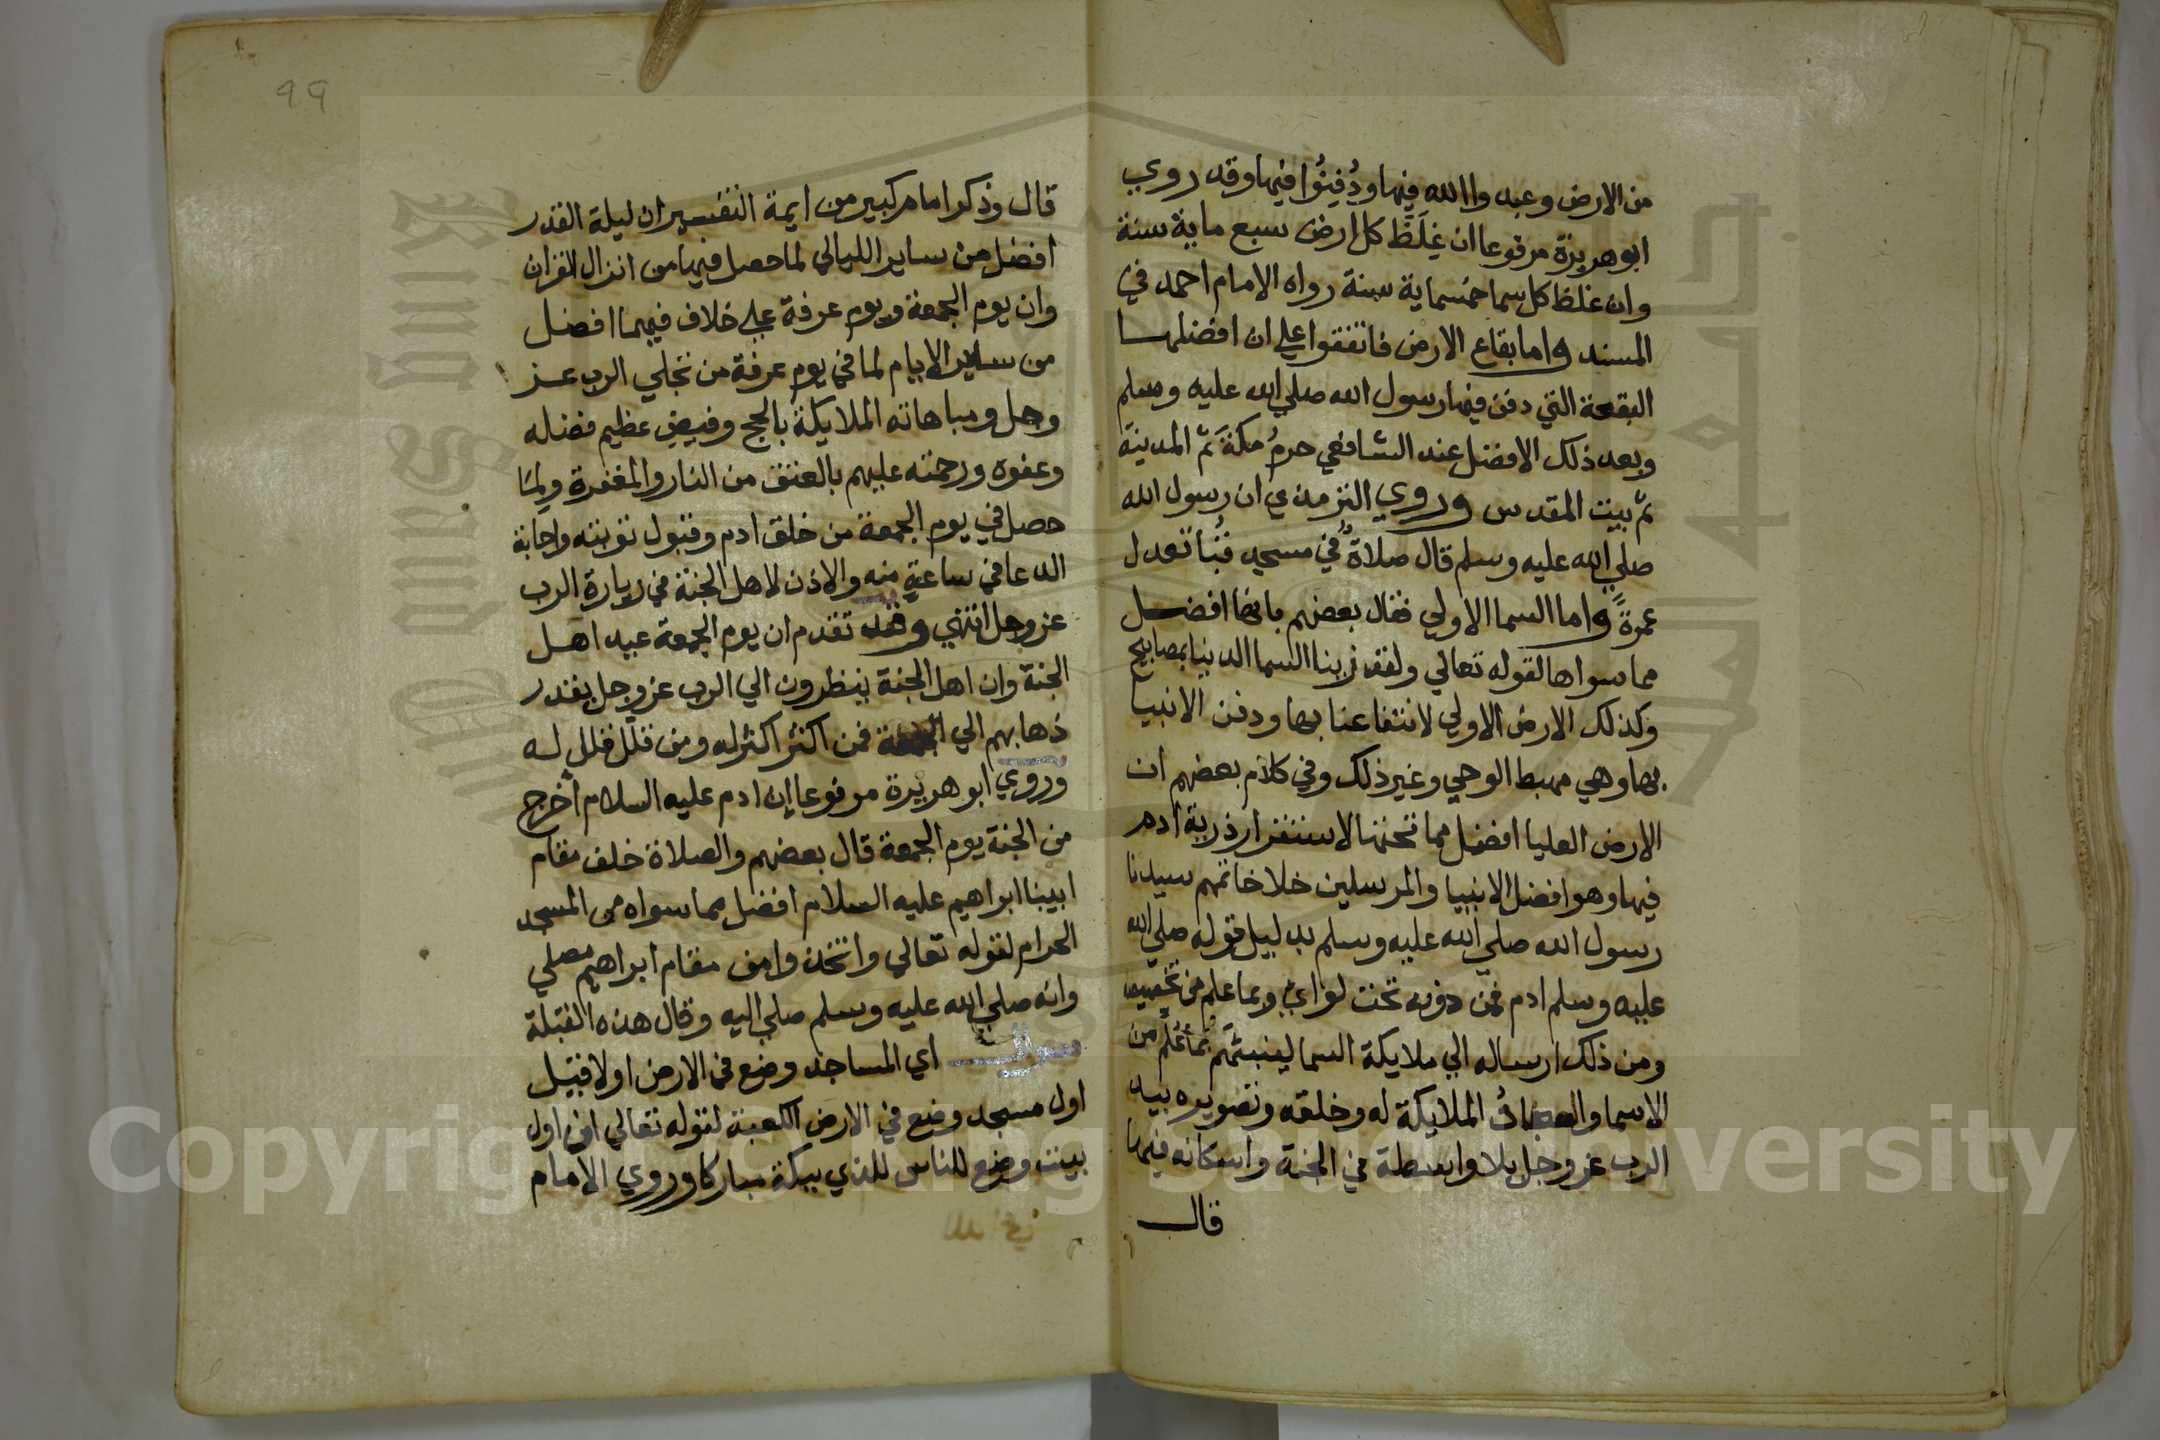 من الارض وعبدوا الله فيها ودُفِنُوا فيها وقد روي
ابو هريرة مرفوعا ان غِلَظَ كل ارض سبع ماية سنة
وان غلظ كل سما خمسماية سنة رواه الامام احمد في
المسند واما بقاع الارض فاتفقوا علي ان افضلها
البقعة التي دفن فيها رسول الله صلي الله عليه وسلم
وبعد ذلك الافضل عند الشافعي حرمُ مكةَ ثمّ المدينة
ثمّ بيت المقدس وروي الترمذي ان رسول الله
صلي الله عليه وسلم قال صلاةٌ في مسجد قُبا تعدل
عمرةً واما السما الاولي فقال بعضهم بانها افضل
مما سواها لقوله تعالي ولقد زينا السما الدنيا بمصابيح
وكذلك الارض الاولي لانتفاعنا بها ودفن الانبيا
بها وهي مهبط الوحي وغير ذلك وفي كلام بعضهم ان
الارض العليا افضل مما تحتها لاستقرار ذرية ادم
فيها وهو افضل الانبيا والمرسلين خلا خاتمهم سيدنا
رسول الله صلي الله عليه وسلم بدليل قوله صلي الله
عليه وسلم ادم فمن دونه تحت لواي وبما علم من تخصيصه
ومن ذلك ارساله الي ملايكة السما لينبئهم بما عُلّم من
الاسما والملايكة له وخلقه وتصويره بيد
الرب عز وجل بلا واسطة في الجنة واسكانه فيها
قال
٩٩
قال وذكر امام كبير من ايمة التفسير ان ليلة القدر
افضل من ساير الليالي لما حصل فيها من انزال القران
وان يوم الجمعة ويوم عرفة علي خلاف فيهما افضل
من ساير الايام لما في يوم عرفة من تجلي الرب عز
وجل ومباهاته الملايكة بالحج وفيض عظيم فضله
وعفوه ورحمته عليهم بالعتق من النار والمغفرة ولما
حصل في يوم الجمعة من خلق ادم وقبول توبته واجابة
الدعا في ساعة منه والاذن لاهل الجنة في زيارة الرب
عز وجل انتهي وقد تقدم ان يوم الجمعة عيد اهل
الجنة وان اهل الجنة ينظرون الي الرب عز وجل بقدر
ذهابهم الي الجمعة فمن اكثر اكثر له ومن قلّل قلل له
وروي ابو هريرة مرفوعا ان ادم عليه السلام أخرج
من الجنة يوم الجمعة قال بعضهم والصلاة خلف مقام
ابينا ابراهيم عليه السلام افضل مما سواه من المسجد
الحرام لقوله تعالي واتخذوا من مقام ابراهيم مصلي
وانه صلي الله عليه وسلم صلي اليه وقال هذه القبلة
سوال اي المساجد وضع في الارض اولا قيل
اول مسجد وضع في الارض الكعبة لقوله تعالي ان اول
بيت وضع للناس للذي ببكة مباركا وروي الامام
Copyright © King Saud University